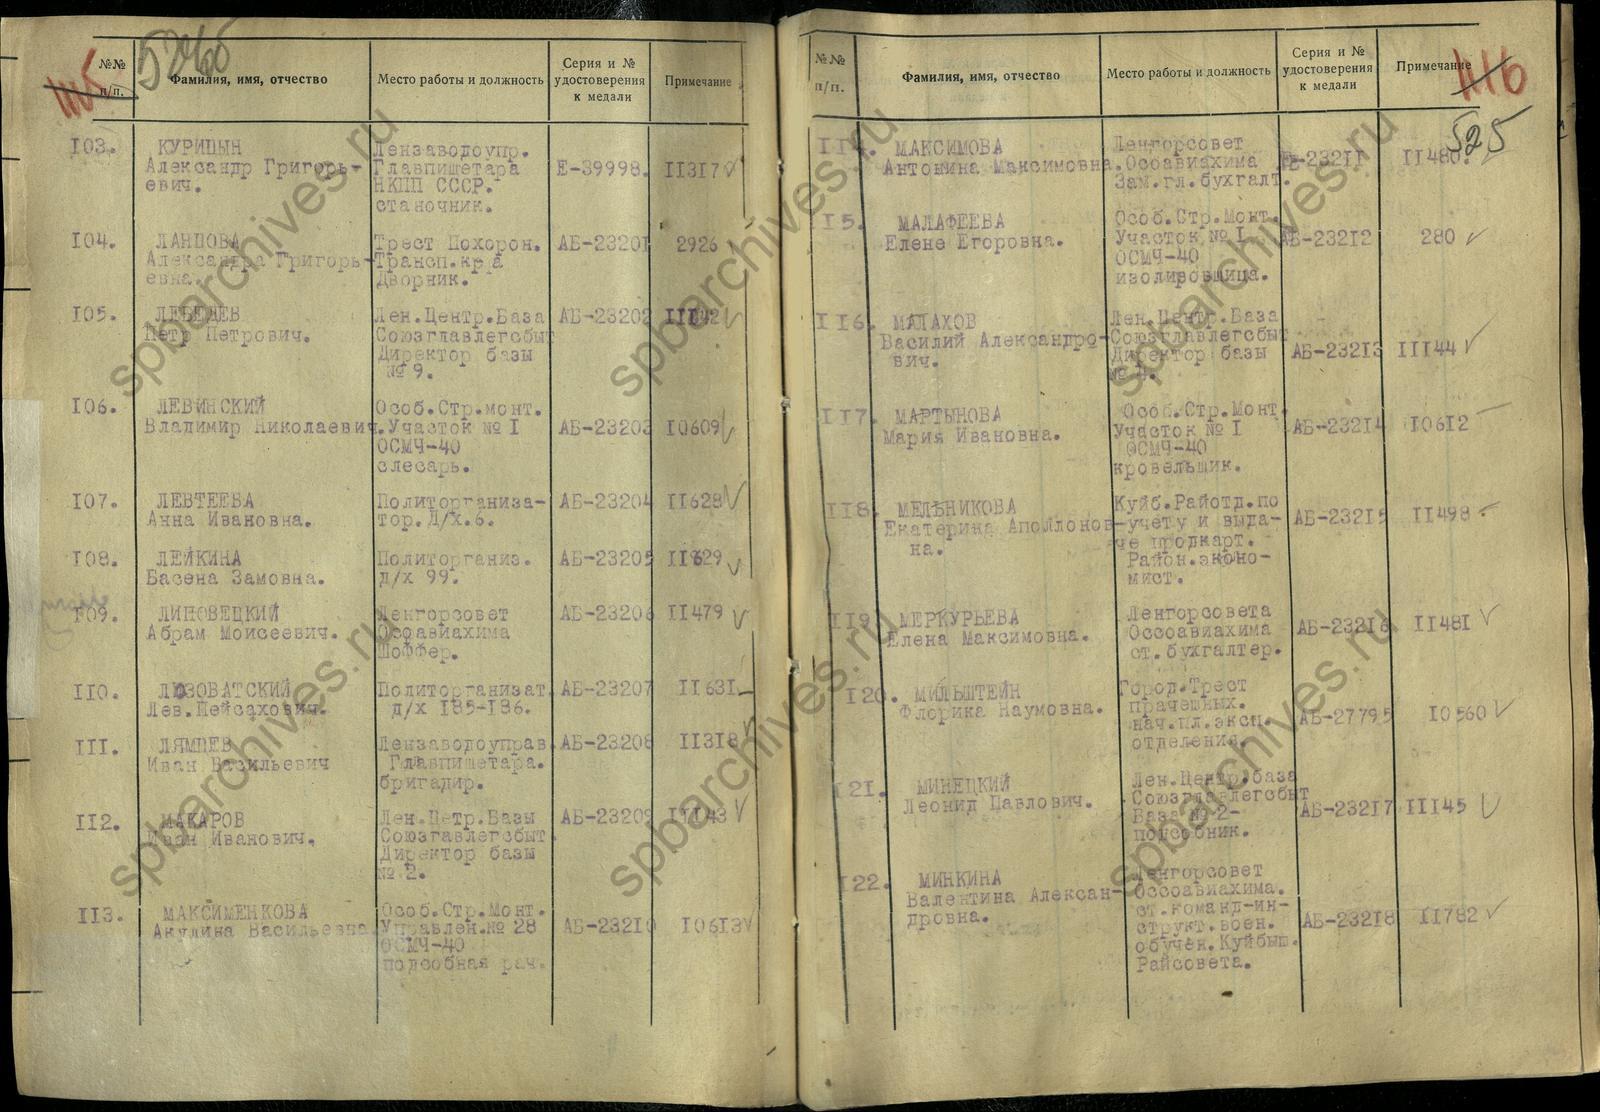 №№
п/п.
Фамилия, имя, отчество
Место работы и должность
Серия и №
удостоверения
к медали
Примечание
103.
КУРИЦЫН
Александр Григорь-
евич.
Лензаводоупр.
Главпищетара
НКПП СССР.
станочник.
Е-39998.
11317
104.
ЛАНЦОВА
Александра Григорь-
евна.
Трест Похорон.
Трансп.
Дворник.
АБ-23201
2926
105.
ЛЕБЕДЕВ
Петр Петрович.
Лен.Центр.База
Союзглавлегсбыт
Директор базы
№ 9.
АБ-23202
11142
106.
ЛЕВИНСКИЙ
Владимир Николаевич.
Особ.Стр.монт.
Участок № I
ОСМЧ-40
слесарь.
АБ-23203
10609
107.
ЛЕВТЕЕВА
Анна Ивановна.
Политорганиза-
тор. Д/х.6.
АБ-23204
11628
108.
ЛЕЙКИНА
Басена Замовна.
Политорганиз.
д/х 99.
АБ-23205
11629
109.
ЛИПОВЕЦКИЙ
Абрам Моисеевич.
Ленгорсовет
Осоавиахима
Шоффер.
АБ-23206
11479
110.
ЛОЗОВАТСКИЙ
Лев.Пейсахович.
Политорганизат.
д/х 185-186.
АБ-23207
11631
111.
ЛЯМЦЕВ
Иван Васильевич
Лензаводоуправ.
Главпищетара.
бригадир.
АБ-23208
11318
112.
МАКАРОВ
Иван Иванович.
Лен.Цетр.Базы
Союзглавлегсбыт.
Директор базы
№ 2.
АБ-23209
11143
113.
МАКСИМЕНКОВА
Акулина Васильевна.
Особ.Стр.Монт.
Управлен.№ 28
ОСМЧ-40
подсобная рач.
АБ-23210
10613
5246
№№
п/п.
Фамилия, имя, отчество
Место работы и должность
Серия и №
удостоверения
к медали
Примечание
116
525
114.
МАКСИМОВА
Антонина Максимовна.
Ленгорсовет
Осоавиахима
Зам.гл.бухгалт.
АБ-23211
11480.
115.
МАЛАФЕЕВА
Елене Егоровна.
Особ.Стр.Монт.
Участок № I
ОСМЧ-40
изолировщица.
АБ-23212
280
116.
МАЛАХОВ
Василий Александро-
вич.
Лен.Центр.База
Союзглавлегсбыт
Директор базы
№ 4.
АБ-23213
11144
117.
МАРТЫНОВА
Мария Ивановна.
Особ.Стр.Монт.
Участок № I
ОСМЧ-40
кровельщик.
АБ-23214
10612
118.
МЕЛЬНИКОВА
Екатерина Аполлонов-
на.
Куйб.Райотд.по
учету и выда-
че продкарт.
Район.эконо-
мист.
АБ-23215
11498
119.
МЕРКУРЬЕВА
Елена Максимовна.
Ленгорсовета
Оссоавиахима
ст.бухгалтер.
АБ-23216
11481
120.
МИЛЬШТЕЙН
Флорика Наумовна.
Город.Трест
прачешных.
нач.пл.эксп.
отделения.
АБ-27795
10560
121.
МИНЕЦКИЙ
Леонид Павлович.
Лен.Центр.база
Союзглавлегсбыт
База № 2-
подсобник.
АБ-23217
11145
122.
МИНКИНА
Валентина Алексан-
дровна.
Ленгорсовет
Оссоавиахима.
ст.команд-ин-
структ.воен.
обучен.Куйбыш.
Райсовета.
АБ-23218
11782
spbarchives.ru
spbarchives.ru
spbarchives.ru
spbarchives.ru
spbarchives.ru
spbarchives.ru